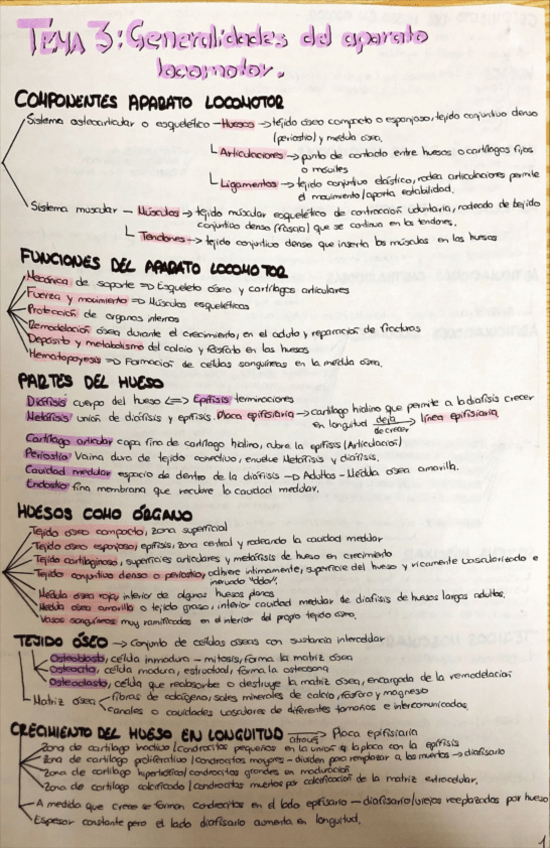 TEMA 3: Generalidades del aparato
locomotor.
COMPONENTES APARATO LOCOMOTOR
Sistema osteoarticular o esquelético - Huesos → tejido óseo compacto o esponjoso, tejido conjuntivo denso
(periostio) y medula ósea.
Articulaciones → punto de contacto entre huesos o cartílagos fijos
o móviles
Ligamentos → tejido conjuntivo elástico, rodea articulaciones permite
el movimiento/aporta estabilidad.
Sistema muscular - Músculos → tejido múscular esquelético de contracción voluntaria, rodeado de tejido
conjuntivo denso (fascia) que se continua en los tendones.
Tendones → tejido conjuntivo denso que inserta los músculos en los huesos
FUNCIONES DEL APARATO LOCOMOTOR
Mecánica de soporte => Esqueleto óseo y cartílagos articulares
Fuerza y movimiento => Músculos esqueléticos
Protección de organos internos
Remodelación ósea durante el crecimiento, en el adulto y reparación de fracturas
Depósito y metabolismo del calcio y fósfato en los huesos
Hematopoyesis => Formación de celulas sanguíneas en la medula ósea.
PARTES DEL HUESO
Diáfisis cuerpo del hueso <=> Epífisis terminaciones
Metáfisis unión de diáfisis y epífisis. Placa epifisiaria → cartílago hialino que permite a la diáfisis crecer
en longitud deja de crecer → línea epifisiaria
Cartílago articular capa fina de cartílago hialino, cubre la epífisis (Articulación)
Periostio Vaina dura de tejido conectivo, envuelve Metáfisis y diáfisis.
Cavidad medular espacio de dentro de la diáfisis → Adultos - Médula ósea amarilla.
Endostio fina membrana que recubre la cavidad medular.
HUESOS COMO ÓRGANO
Tejido óseo compacto, zona superficial
Tejido óseo esponjoso, epífisis, zona central y rodeando la cavidad medular
Tejido cartilaginoso, superficies articulares y metáfisis de hueso en crecimiento
Tejido conjuntivo denso o periostio, adhiere intimamente, superficie del hueso y ricamente vascularizado e
inervado "dolor".
Médula ósea roja, interior de algunos huesos planos
Medula ósea amarilla o tejido graso, interior cavidad medular de diáfisis de huesos largos adultos.
Vasos sanguíneos muy ramificados en el interior del propio tejido óseo.
TEJIDO ÓSEO → Conjunto de células óseas con sustancia intercelular
Osteoblasto, célula inmadura - mitosis, forma la matriz ósea
Osteocito, célula madura, estructural, forma la osteona
Osteoclasto, célula que reabsorbe o destruye la matriz ósea, encargada de la remodelación
Matriz ósea fibras de colágeno, sales minerales de calcio, fósforo y magnesio
canales o cavidades vasculares de diferentes tamaños e intercomunicadas.
CRECIMIENTO DEL HUESO EN LONGUITUD através → Placa epifisiaria
Zona de cartílago inactivo/condrocitos pequeños en la unión de la placa con la epífisis
Zona de cartílago proliferativo/condrocitos mayores - dividen para remplazar a los muertos → diafisario
Zona de cartílago hipertrófico/condrocitos grandes en maduración
Zona de cartílago calcificado/condrocitos muertos por calcificación de la matriz extracelular.
A medida que crece se forman condrocitos en el lado epifisario - diafisario/viejos reeplazados por hueso
Espesor constante pero el lado diafisario aumenta en longitud.
1